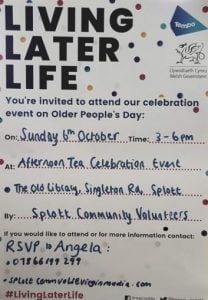 LIVING
LATER
LIFE
Tempo
Llywodraeth Cymru
Welsh Government
You're invited to attend our celebration
event on Older People's Day:
On: Sunday 6th October Time: 3-6pm
At: Afternoon Tea Celebration Event
The Old Library, Singleton Rd, Splott
By: Splott Community Volunteers
If you would like to attend or for more information contact:
RSVP to Angela:
#LivingLaterLife